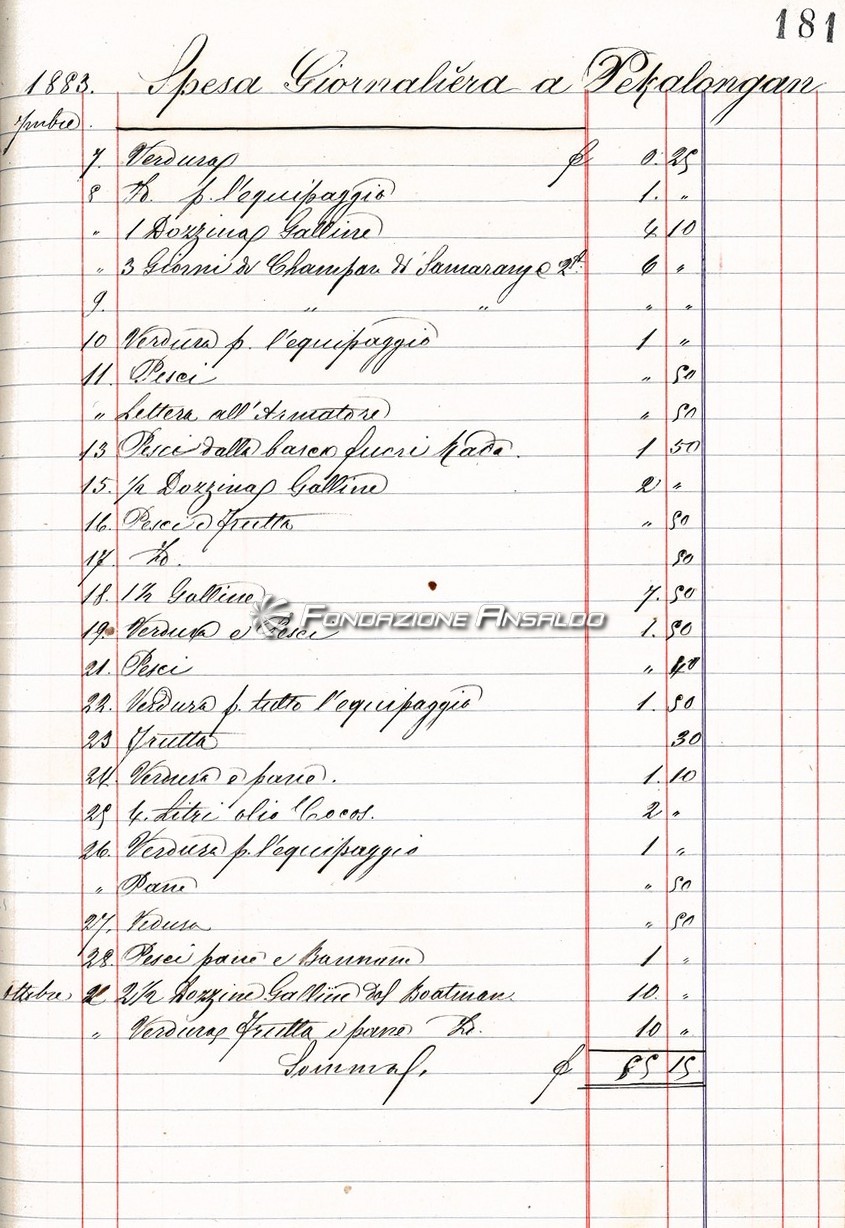 181
1883. Spesa Giornaliera a Pekalongan
7mbre
7. Verdura f 0. 25
8 Id. p. l'equipaggio 1. "
" 1 Dozzina Galline 4 10
" 3 Giorni di Champan di Samarang a 2f. 6 "
9. " " " "
10 Verdura p. l'equipaggio 1 "
11. Pesci " 50
" Lettera all'Armatore " 50
13 Pesci dalla barca fuori Rada. 1 50
15. 1/2 Dozzina Galline 2 "
16. Pesci e frutta " 50
17. Id. 50
18. 1 1/2 Galline 7. 50
FONDAZIONE ANSALDO
19. Verdura e Pesci 1. 50
21. Pesci " 40
22. Verdura p. tutto l'equipaggio 1. 50
23 Frutta 30
24. Verdura e pane. 1. 10
25 4. Litri olio Cocos. 2 "
26. Verdura p. l'equipaggio 1 "
" Pane " 50
27. Vedura " 50
28. Pesci pane e Bannane 1 "
Ottobre 2 2 1/2 Dozzine Galline dal Boatman. 10. "
" Verdura Frutta e pane Id. 10 "
Somma f 55 15